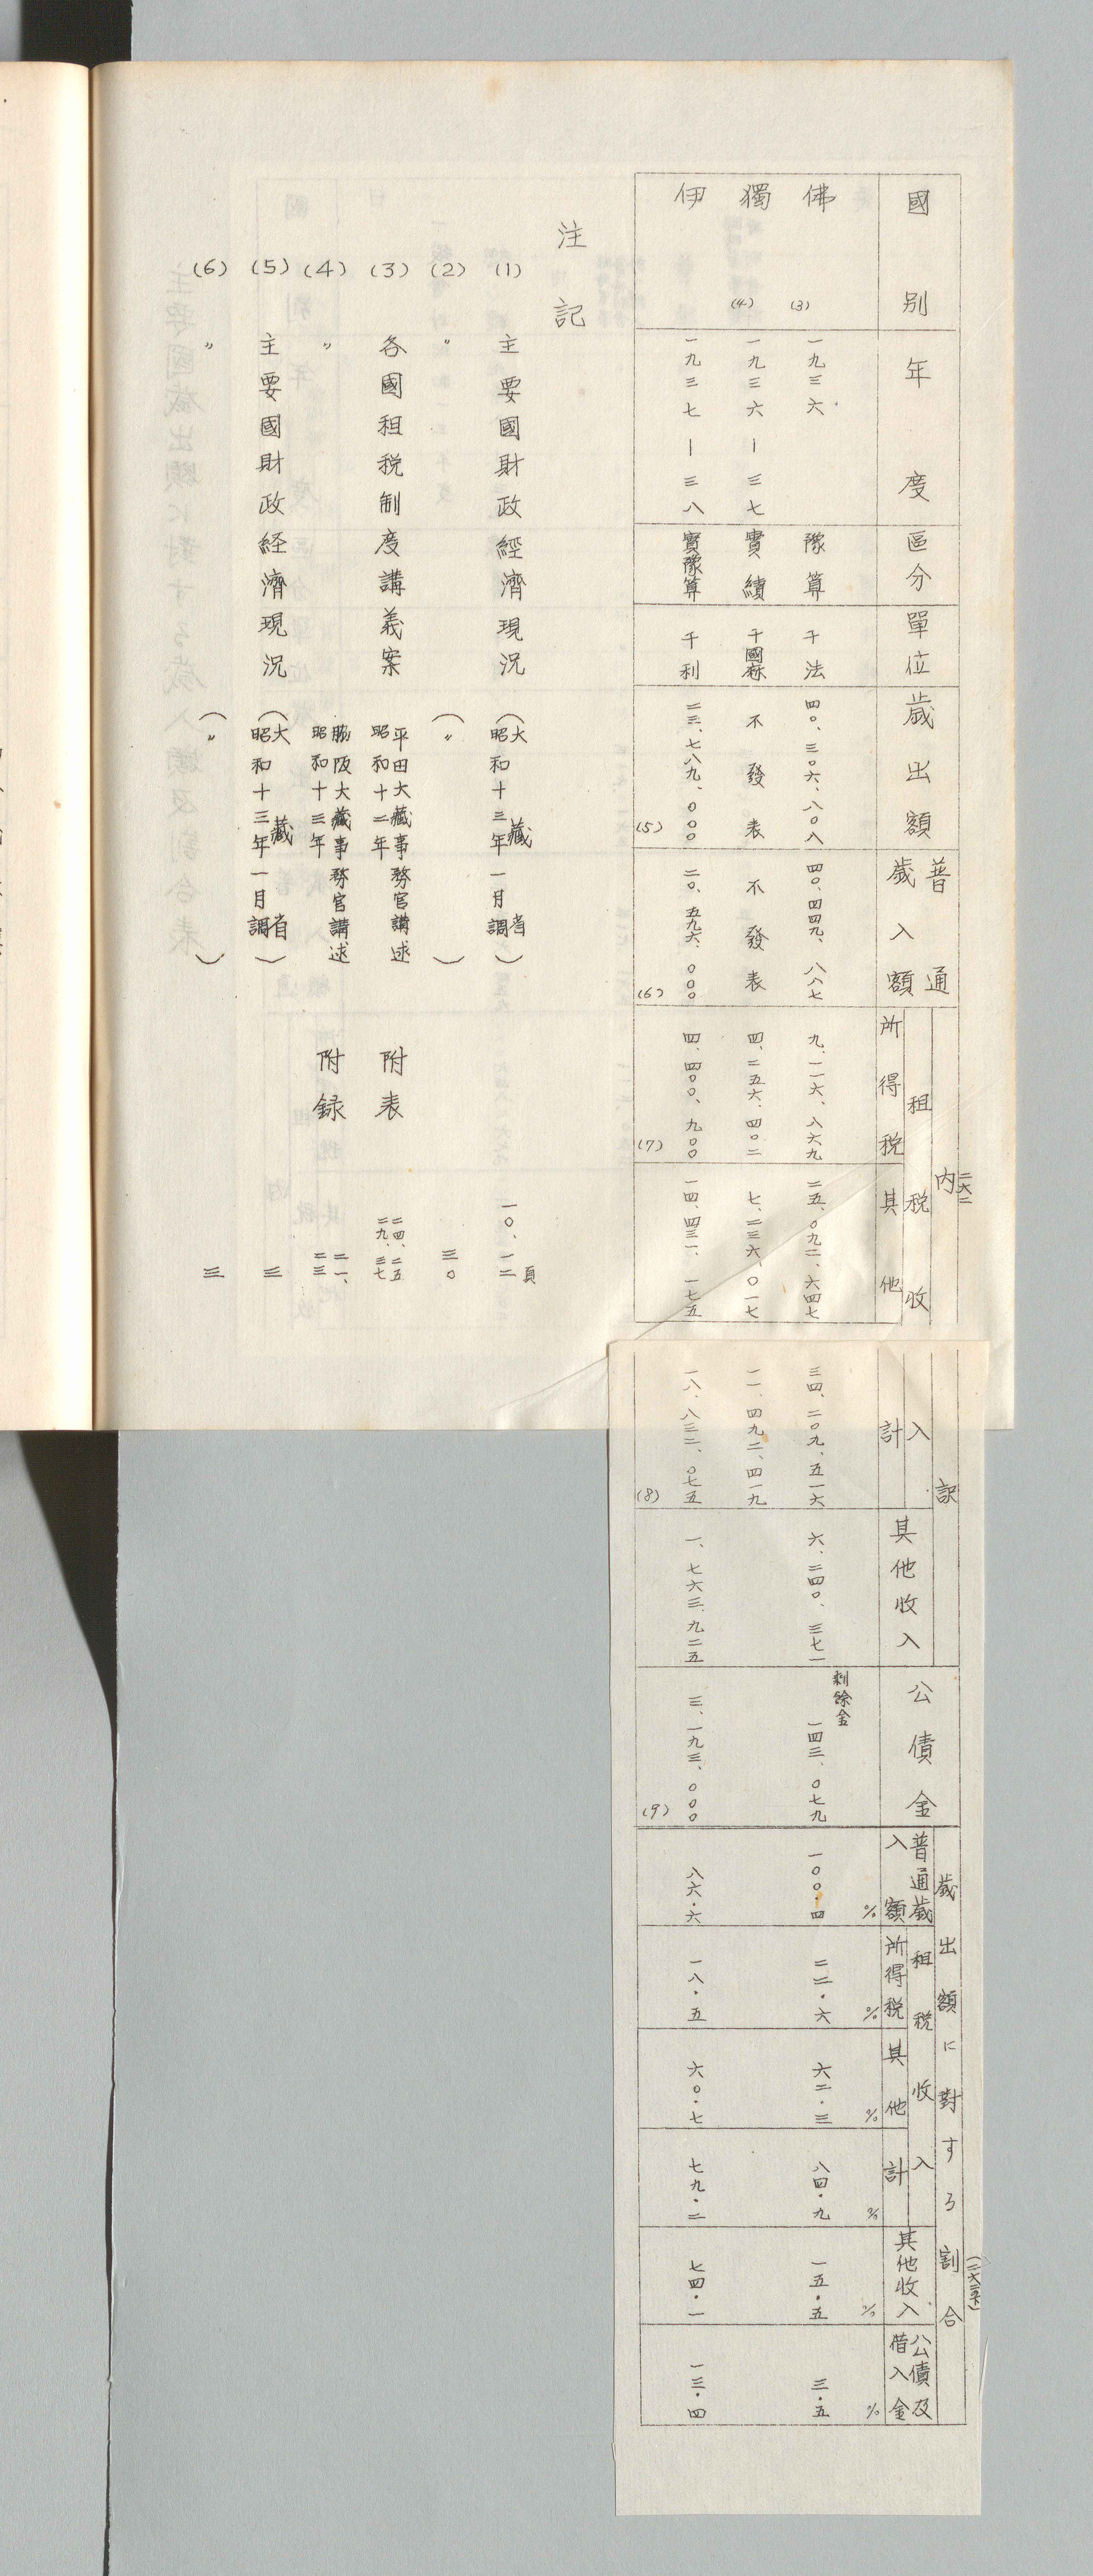 國別
年度
區分
單位
歳出額
普通歳入額
内訳
租税收入
所得税
其他
計
其他收入
公債金
歳出額に對する割合
普通歳入額
租税收入
所得税
其他
計
其他收入
公債及借入金
二六二
(二六二下)
佛 (3) 一九三六 豫算 千法 四〇、三〇六、八〇八 四〇、四四九、八八七 九、一一六、八六九 二五、〇九二、六四七 三四、二〇九、五一六 六、二四〇、三七一 剰餘金 一四三、〇七九 一〇〇・四% 二二・六% 六二・三% 八四・九% 一五・五% 三・五%
獨 (4) 一九三六—三七 實績 千國麻 不發表 不發表 四、二五六、四〇二 七、二三六、〇一七 一一、四九二、四一九
伊 一九三七—三八 實豫算 千利 二三、七八九、〇〇〇 二〇、五九六、〇〇〇 四、四〇〇、九〇〇 一四、四三一、一七五 一八、八三二、〇七五 一、七六三、九二五 三、一九三、〇〇〇 八六・六 一八・五 六〇・七 七九・二 七四・一 一三・四
(5) (6) (7) (8) (9)
注記
(1) 主要國財政經濟現況 (大藏省 昭和十三年一月調) 一〇、一二頁
(2) 〃 (〃) 三〇
(3) 各國租税制度講義案 平田大藏事務官講述 昭和十二年 附表 二四、二五 二九、三七
(4) 〃 脇阪大藏事務官講述 昭和十三年 附録 二一、二三
(5) 主要國財政経濟現況 (大藏省 昭和十三年一月調) 三
(6) 〃 (〃) 三